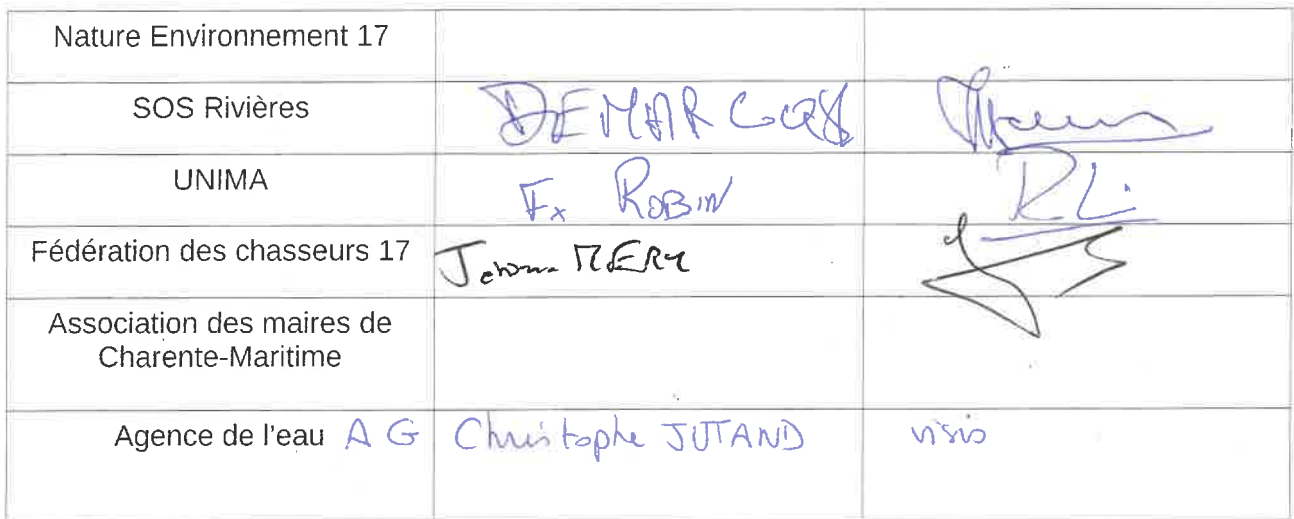 Nature Environnement 17
SOS Rivières DEMARCQ
UNIMA Fx ROBIN
Fédération des chasseurs 17 MERY
Association des maires de
Charente-Maritime
Agence de l'eau A G Christophe JUTAND visio